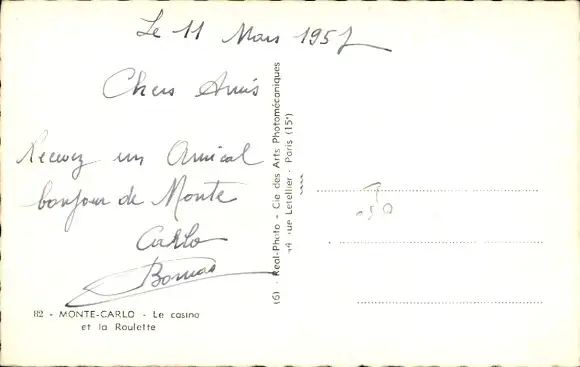 Le 11 Mars 1957
Chers Amis
Recevez un Amical
bonjour de Monte
Carlo
82 - MONTE-CARLO - Le casino
et la Roulette
(6) - Real-Photo - Cie des Arts Photomécaniques
44 rue Letellier - Paris (15e)